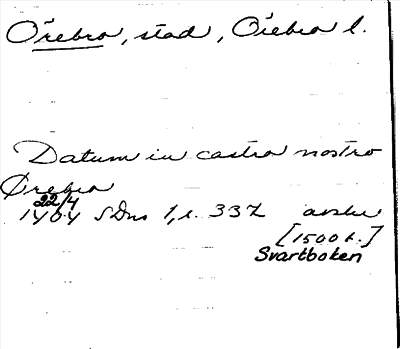 Örebro, stad, Örebro l.
Datum in castro nostro
Ørebro
22/4
1404 SDns 1, s. 337 avskr
[1500 t.]
Svartboken